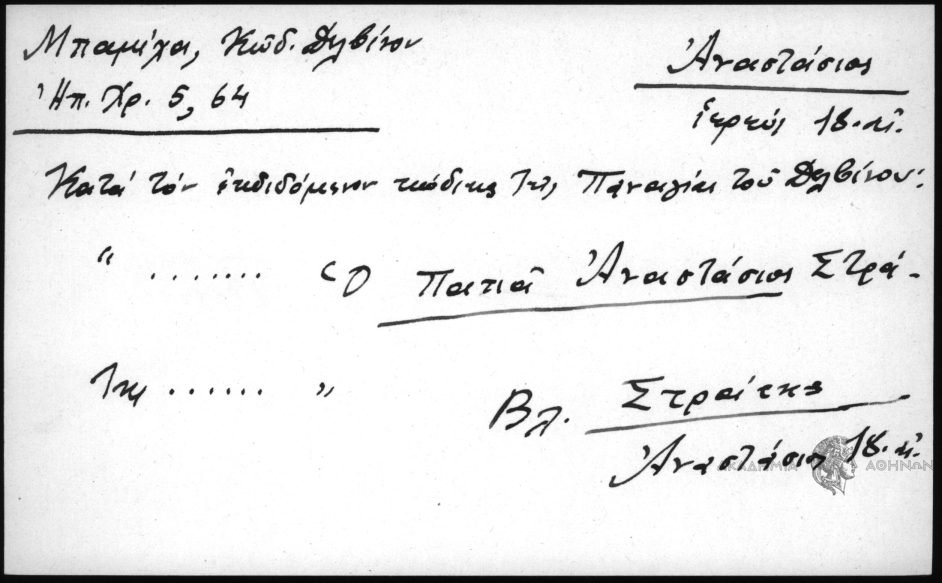 Μπαμίχα, Κώδ. Δελβίνου
Ἠπ. Χρ. 5, 64
Ἀναστάσιος
ἱερεύς 18. αἰ.
Κατά τόν ἐκδιδόμενον κώδικα τῆς Παναγίας τοῦ Δελβίνου:
“ ....... Ὁ Παπᾶ Ἀναστάσιος Στρά-
της ...... ”
Βλ. Στράτης
Ἀναστάσιος 18. αἰ.
ΑΚΑΔΗΜΙΑ ΑΘΗΝΩΝ